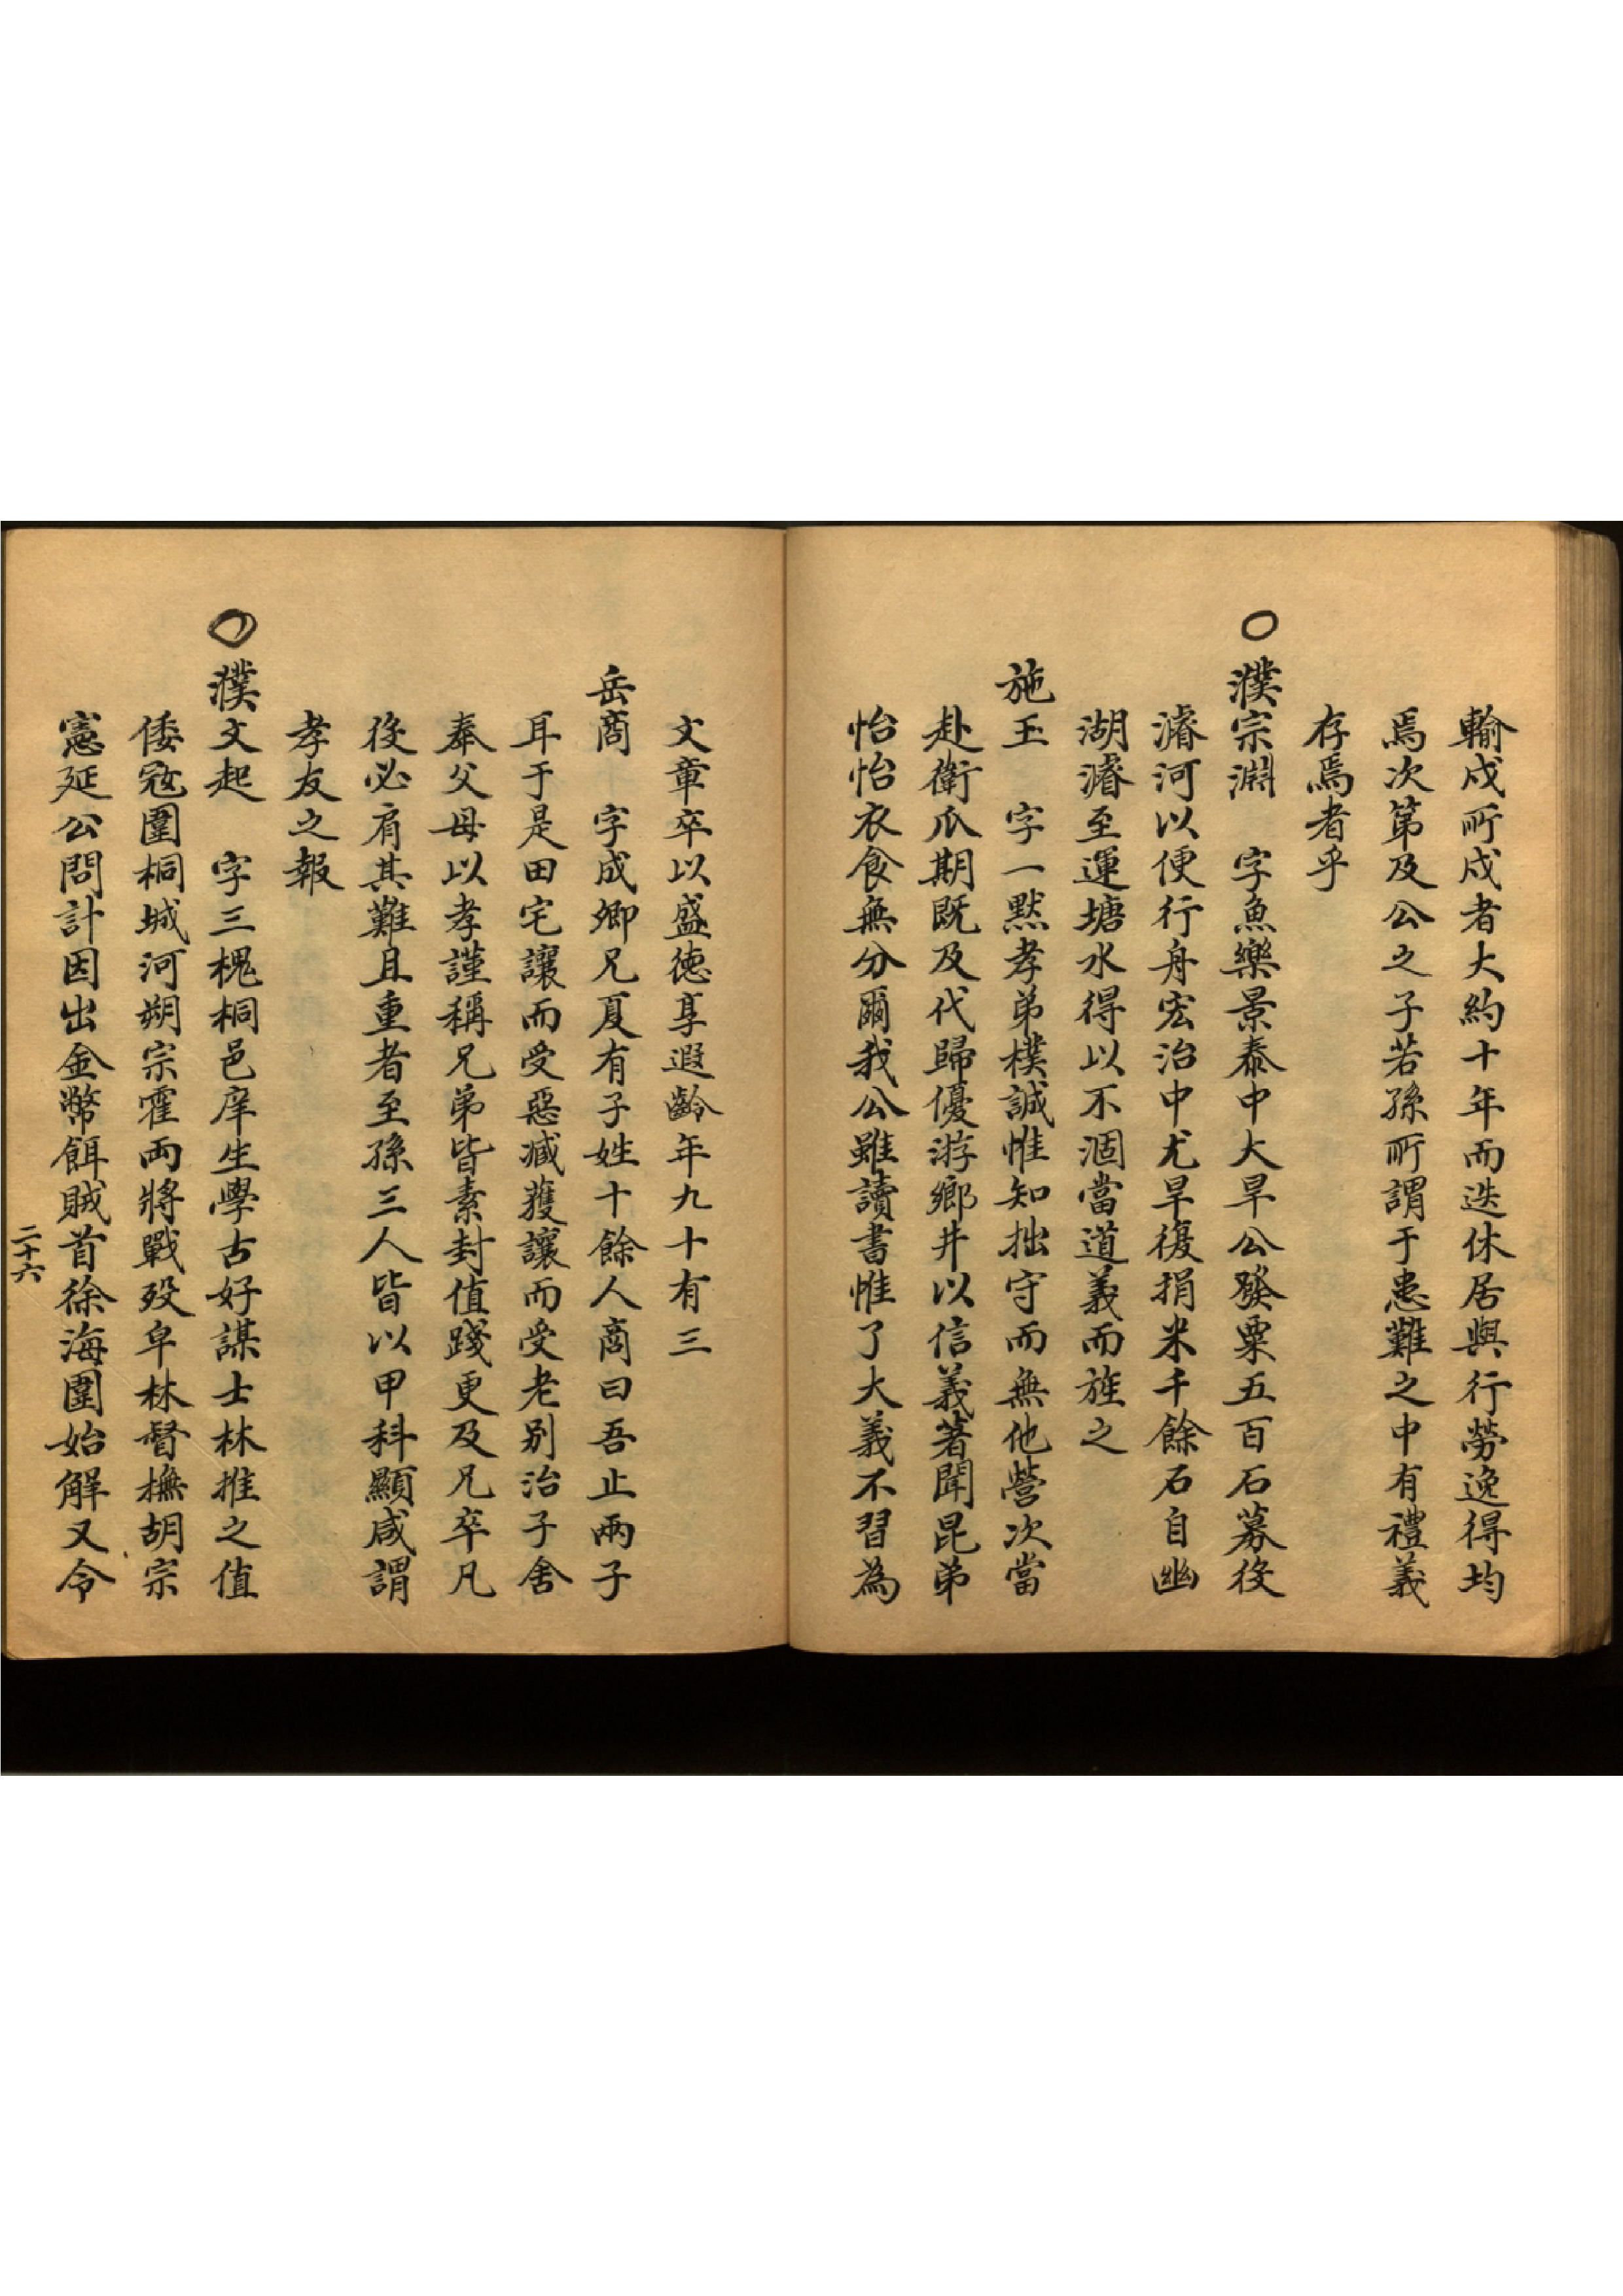 輸戍所戍者大約十年而迭休居與行勞逸得均
焉次第及公之子若孫所謂于患難之中有禮義
存焉者乎
○濮宗淵　字魚樂景泰中大旱公發粟五百石募役
濬河以便行舟宏治中尤旱復捐米千餘石自幽
湖濬至運塘水得以不涸當道義而旌之
施玉　字一默孝弟樸誠惟知拙守而無他營次當
赴衛瓜期既及代歸優游鄉井以信義著聞昆弟
怡怡衣食無分爾我公雖讀書惟了大義不習為
文章卒以盛德享遐齡年九十有三
岳商　字成卿兄夏有子姓十餘人商曰吾止兩子
耳于是田宅讓而受惡臧獲讓而受老别治子舍
奉父母以孝謹稱兄弟皆素封值踐更及兄卒凡
役必肩其難且重者至孫三人皆以甲科顯咸謂
孝友之報
○濮文起　字三槐桐邑庠生學古好謀士林推之值
倭寇圍桐城河朔宗霍兩將戰歿皁林督撫胡宗
憲延公問計因出金幣餌賊首徐海圍始解又令
二十六